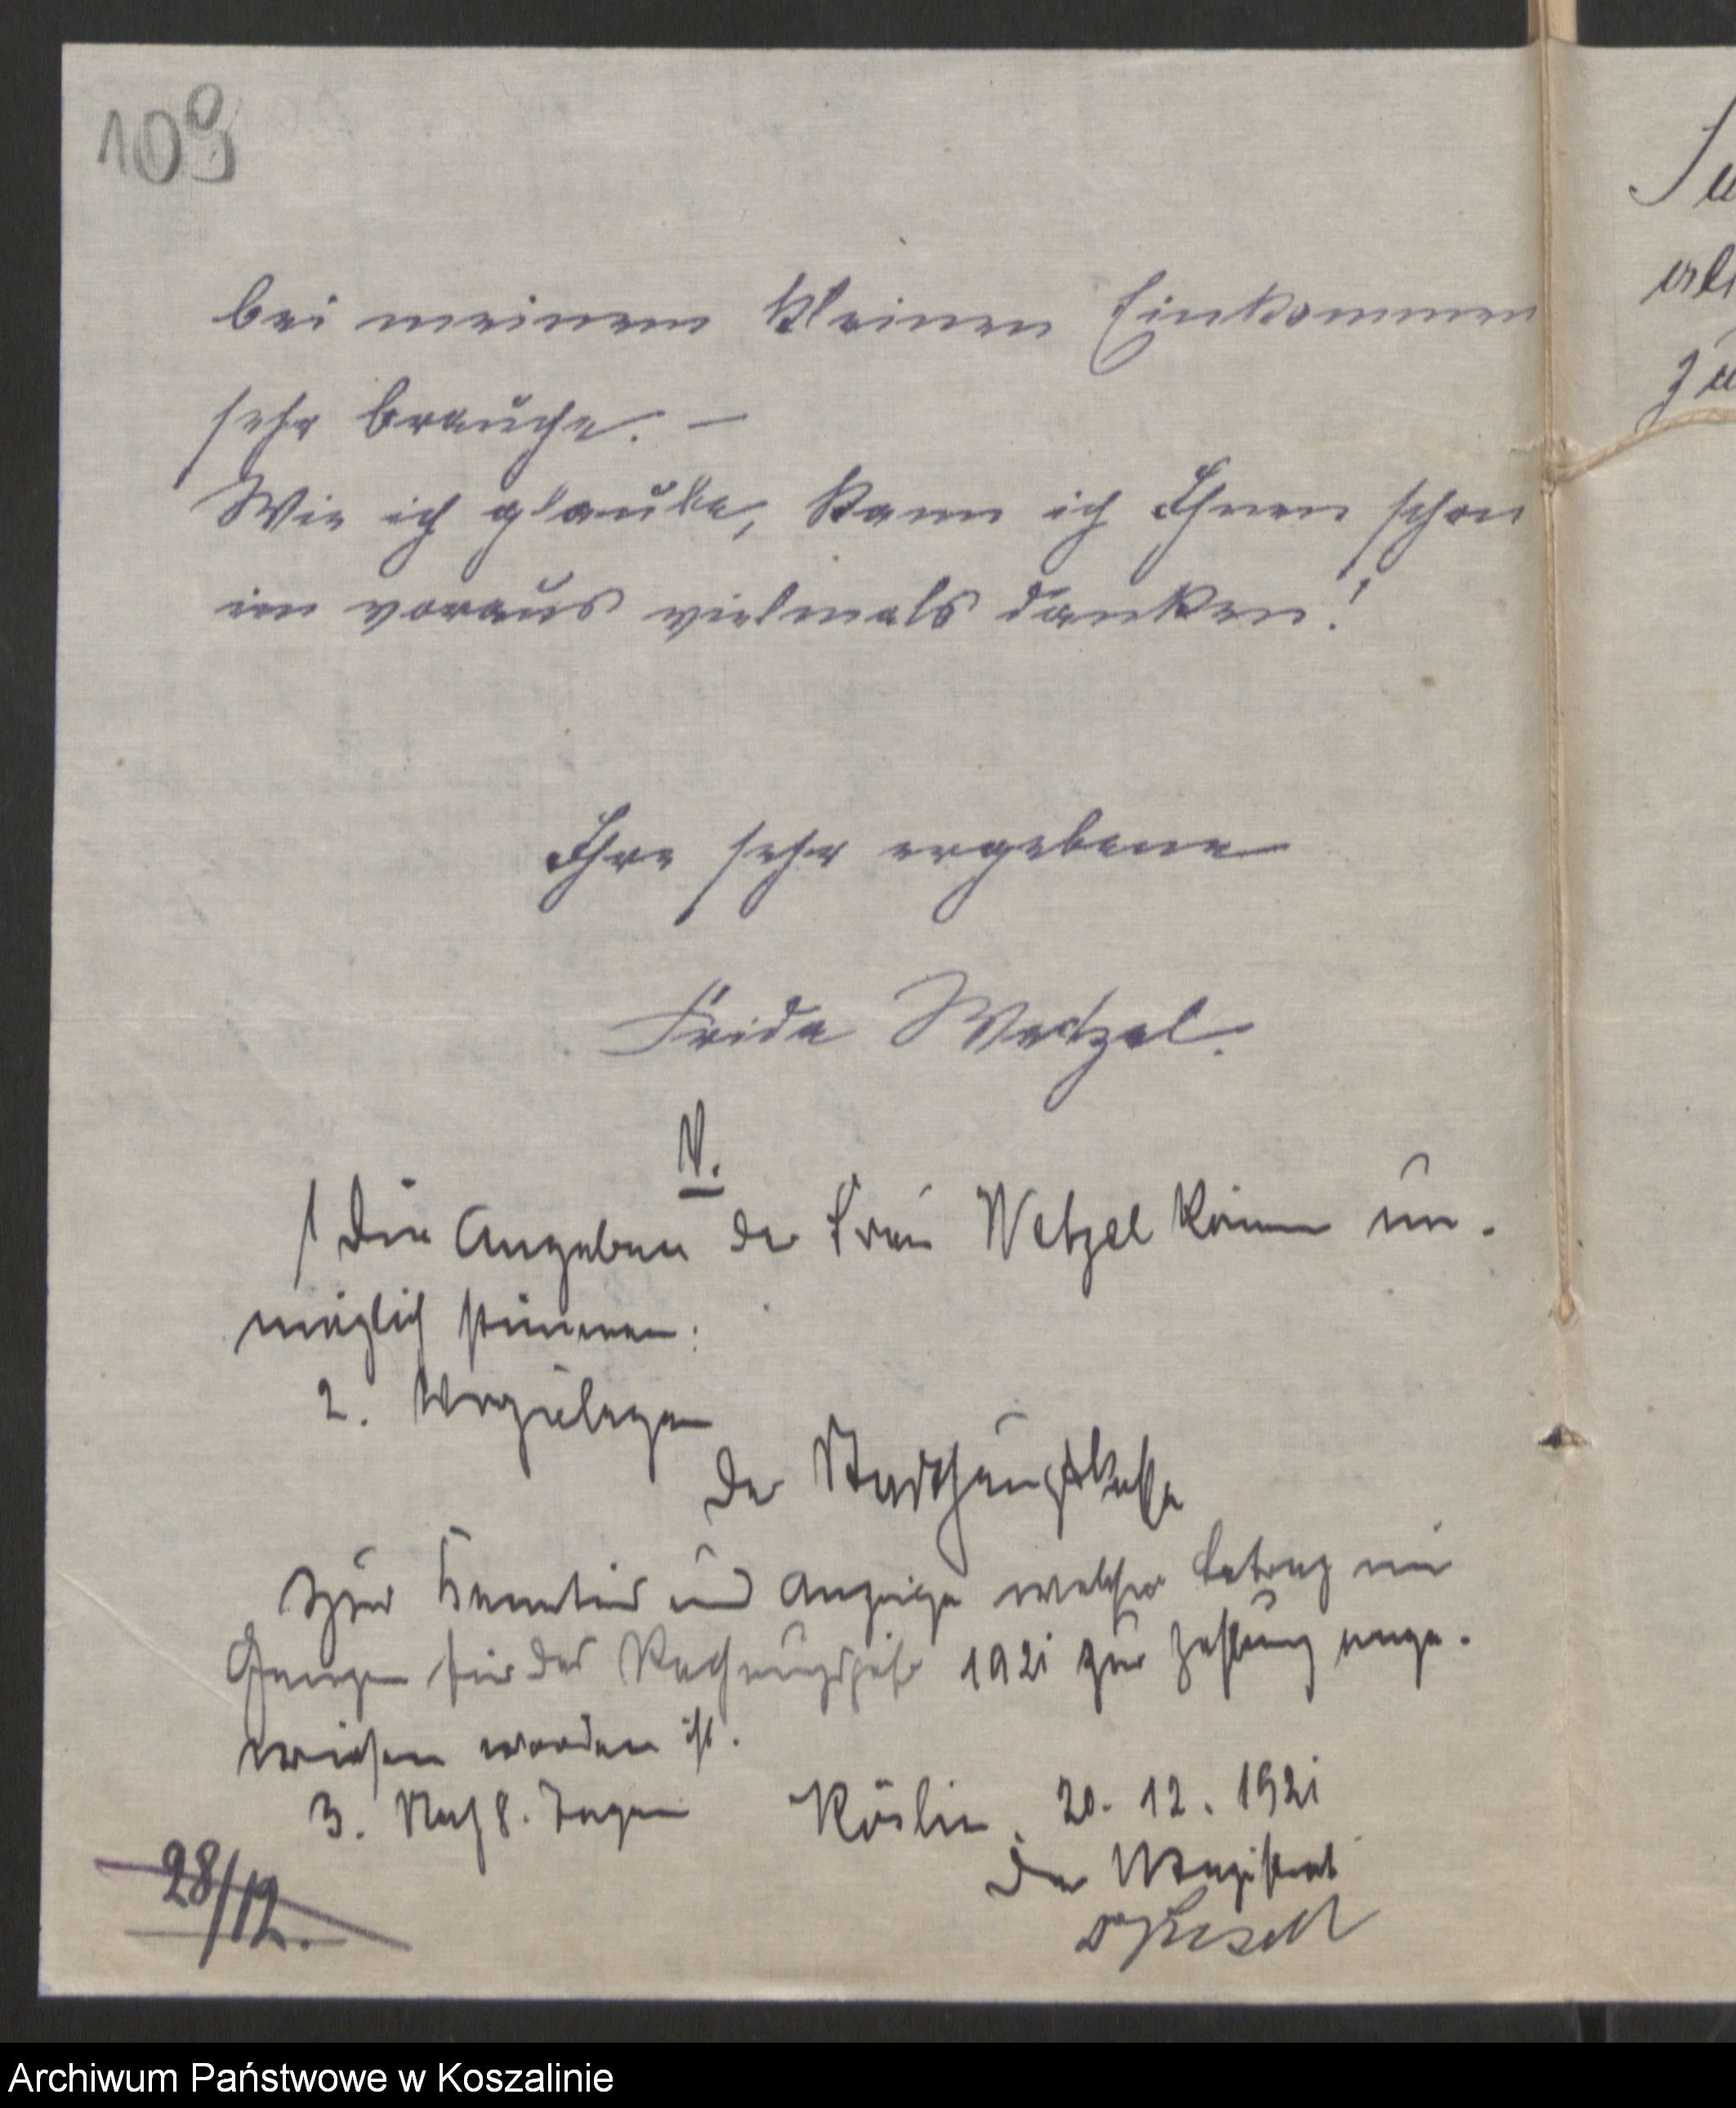 109
bei meinem kleinen Einkommen
sehr brauche. –
Wie ich glaube, kann ich Ihnen schon
im voraus vielmals danken!
Ihre sehr ergebene
Frida Wetzel.
V.
1 Die Angaben der Frau Wetzel können un-
möglich stimmen.
2. Vorzulegen
der Stadthauptkasse
zur Kenntnis und Anzeige welcher Betrag im
Ganzen für das Rechnungsjahr 1921 zur Zahlung ange-
wiesen worden ist.
3. Nach 8. Tagen Köslin, 20. 12. 1921
Der Magistrat
28/12.
Archiwum Państwowe w Koszalinie